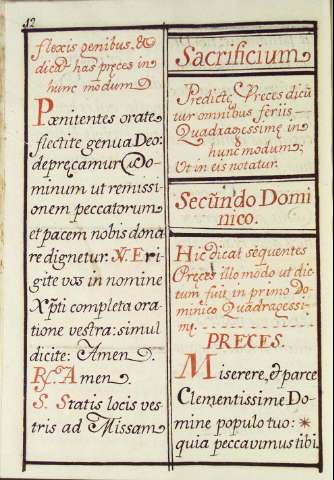 12
flexis genibus, &
dicat has pręces in
hunc modum
Pœnitentes orate
flectite genua Deo:
depręcamur Do-
minum ut remissi
onem peccatorum
et pacem nobis dona
re dignetur. V. Eri
gite vos in nomine
Xp̃ti completa ora-
tione vestra: simul
dicite: Amen.
R. Amen.
S. Statis locis ves
tris ad Missam
Sacrificium
Predictę Pręces dicũ
tur omnibus feriis
Quadragessimę in
hunc modum;
Ut in eis notatur.
Secũndo Domi
nico.
Hic dicat sequentes
Pręces illo modo ut dic
tum fuit in primo Do
minico Quadragessi
mę.
PRECES.
Miserere, & parce
Clementissime Do-
mine populo tuo: *
quia peccavimus tibi.